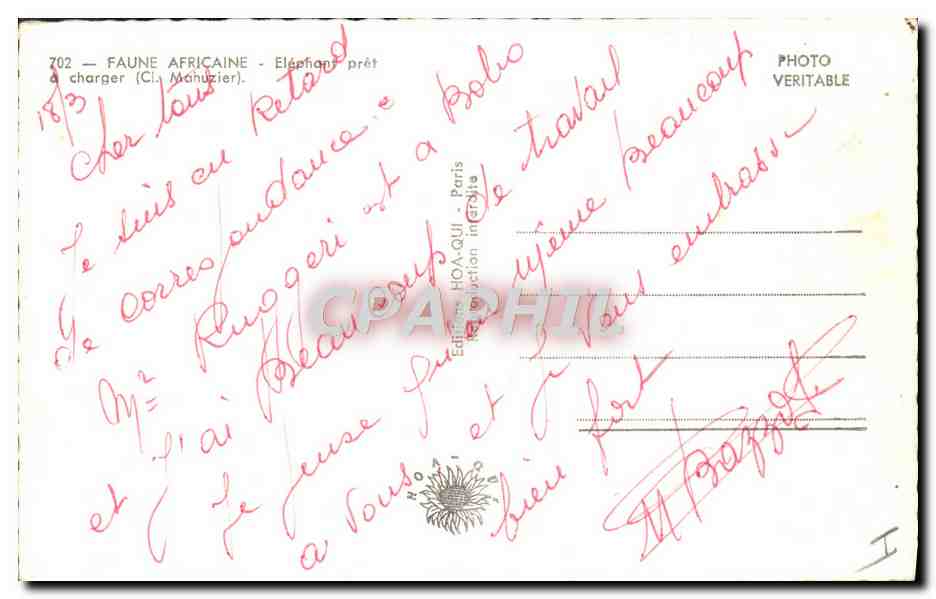 702 — FAUNE AFRICAINE - Eléphant prêt
à charger (Cl. Mahuzier).
PHOTO
VERITABLE
18/3
Cher tous
Je suis en Retard
de correspondance
Mr Ruogeri est a Bobo
et j'ai Beaucoup de travail
Je pense quand même Beaucoup
a vous et je vous embrasse
bien fort
M Bazzi
Editions HOA-QUI - Paris
Reproduction interdite
HOA-QUI
CPAPHIL
I